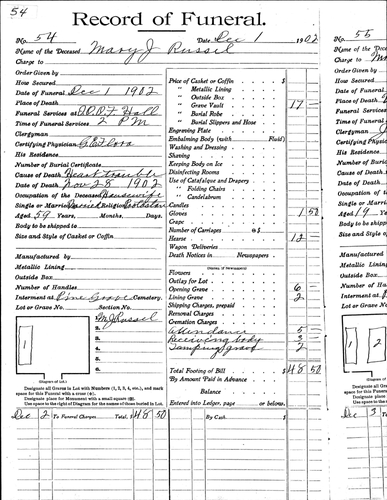 54
Record of Funeral.
No. 54 Date Dec 1 1902
Name of the Deceased Mary J Russel
Charge to
Order Given by
How Secured
Date of Funeral Dec 1 1902
Place of Death
Funeral Services at I.O.O.F Hall
Time of Funeral Services 2 PM
Clergyman
Certifying Physician
His Residence
Number of Burial Certificate
Cause of Death Heart trouble
Date of Death Nov 28 1902
Occupation of the Deceased Housewife
Single or Married Married Religion
Aged 59 Years, Months, Days.
Body to be shipped to
Size and Style of Casket or Coffin
Manufactured by
Metallic Lining
Outside Box
Number of Handles
Interment at Pine Grove Cemetery.
Lot or Grave No. Section No.
1
1. M J Russel
2.
3.
4.
5.
6.
(Diagram of Lot.)
Designate all Graves in Lot with Numbers (1, 2, 3, 4, etc.), and mark
space for this Funeral with a cross (+).
Designate place for Monument with a small square (■).
Use space to the right of Diagram for the names of those buried in Lot.
Price of Casket or Coffin $
" Metallic Lining
" Outside Box
" Grave Vault 17 —
" Burial Robe
" Burial Slippers and Hose
Engraving Plate
Embalming Body (with Fluid)
Washing and Dressing
Shaving
Keeping Body on Ice
Disinfecting Rooms
Use of Catafalque and Drapery
" Folding Chairs
" Candelabrum
Candles
Gloves 1 50
Crape
Number of Carriages @$
Hearse 12 —
Wagon Deliveries
Death Notices in Newspapers
(Names of Newspapers)
Flowers
Outlay for Lot
Opening Grave 6 —
Lining Grave 2 —
Shipping Charges, prepaid
Removal Charges
Cremation Charges
Attendance 5 —
Receiving body 3 —
2
Total Footing of Bill $48 50
By Amount Paid in Advance
Balance
Entered into Ledger, page or below.
Dec 2 To Funeral Charges Total, $48 50 By Cash $
55
No. 55
Name of the
Charge to
Order Given
How Secured
Date of
Place of
Funeral
Time of
Clergyman
Certifying
His Residence
Number of
Cause of
Date of
Occupation
Single or
Aged 19
Body to be
Size and
Manufactured
Metallic
Outside
Number
Interment
Lot or
1
Dec 3